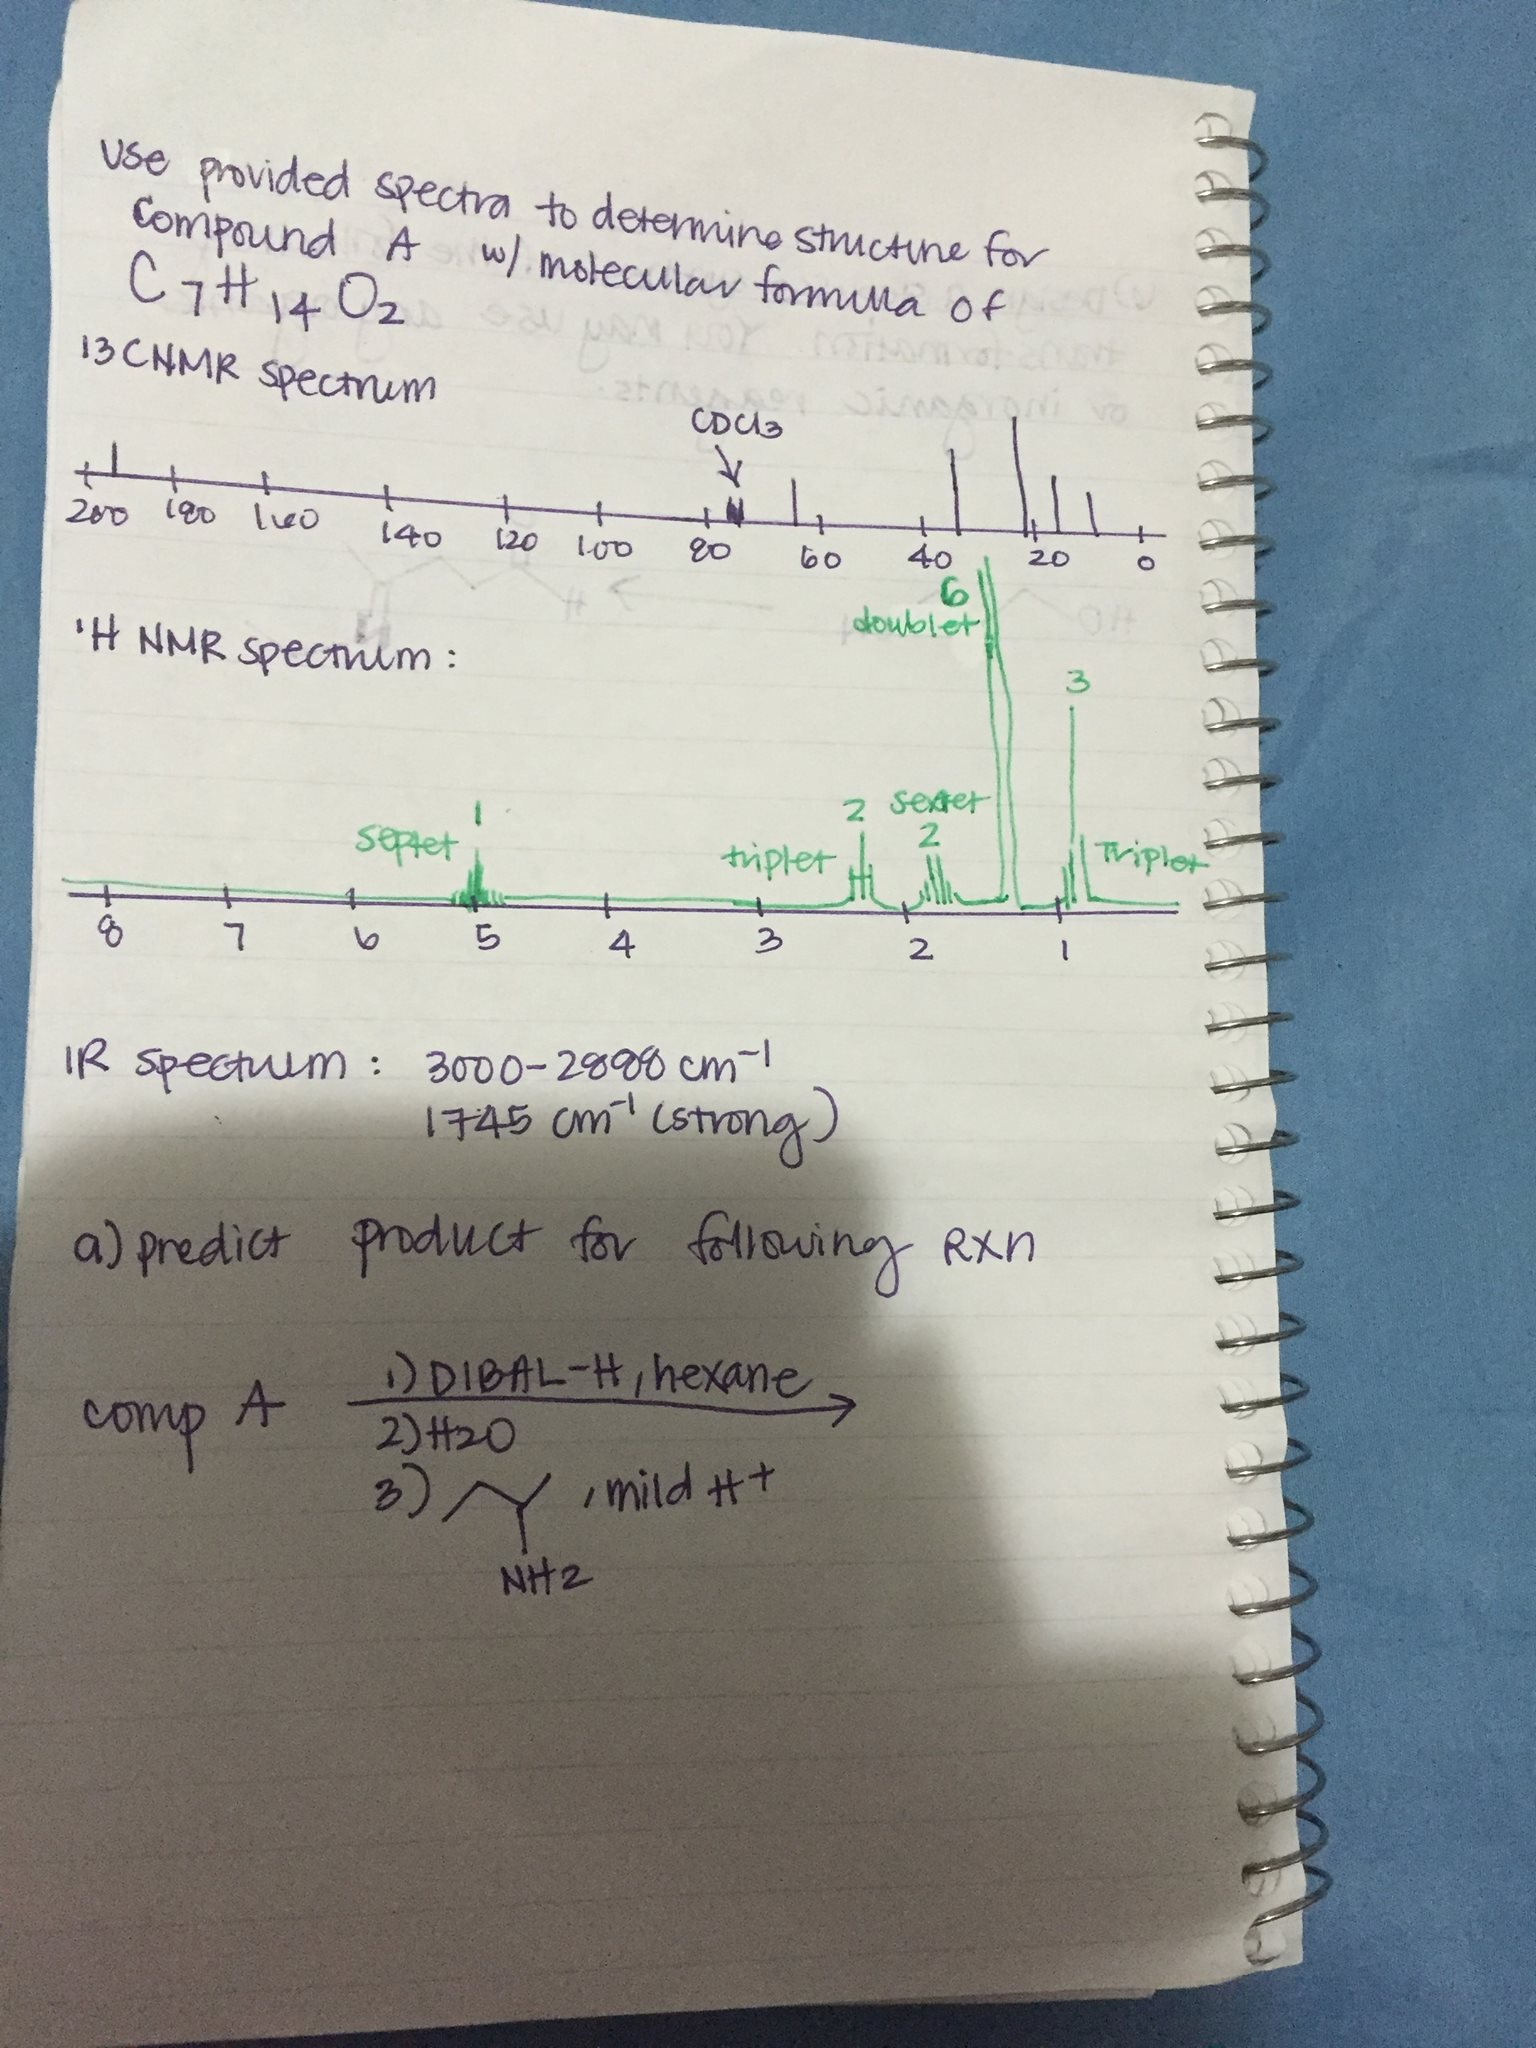 Use provided spectra to determine structure for
compound A w/ molecular formula of
C7H14O2
13CNMR spectrum
CDCl3
200 180 160 140 120 100 80 60 40 20 0
'H NMR spectrum:
6
doublet
3
1
septet
2
triplet
sextet
2
Triplet
8 7 6 5 4 3 2 1
IR spectrum: 3000-2888 cm-1
1745 cm-1 (strong)
a) predict product for following RXn
comp A 1) DIBAL-H, hexane
2) H2O
3) , mild H+
NH2